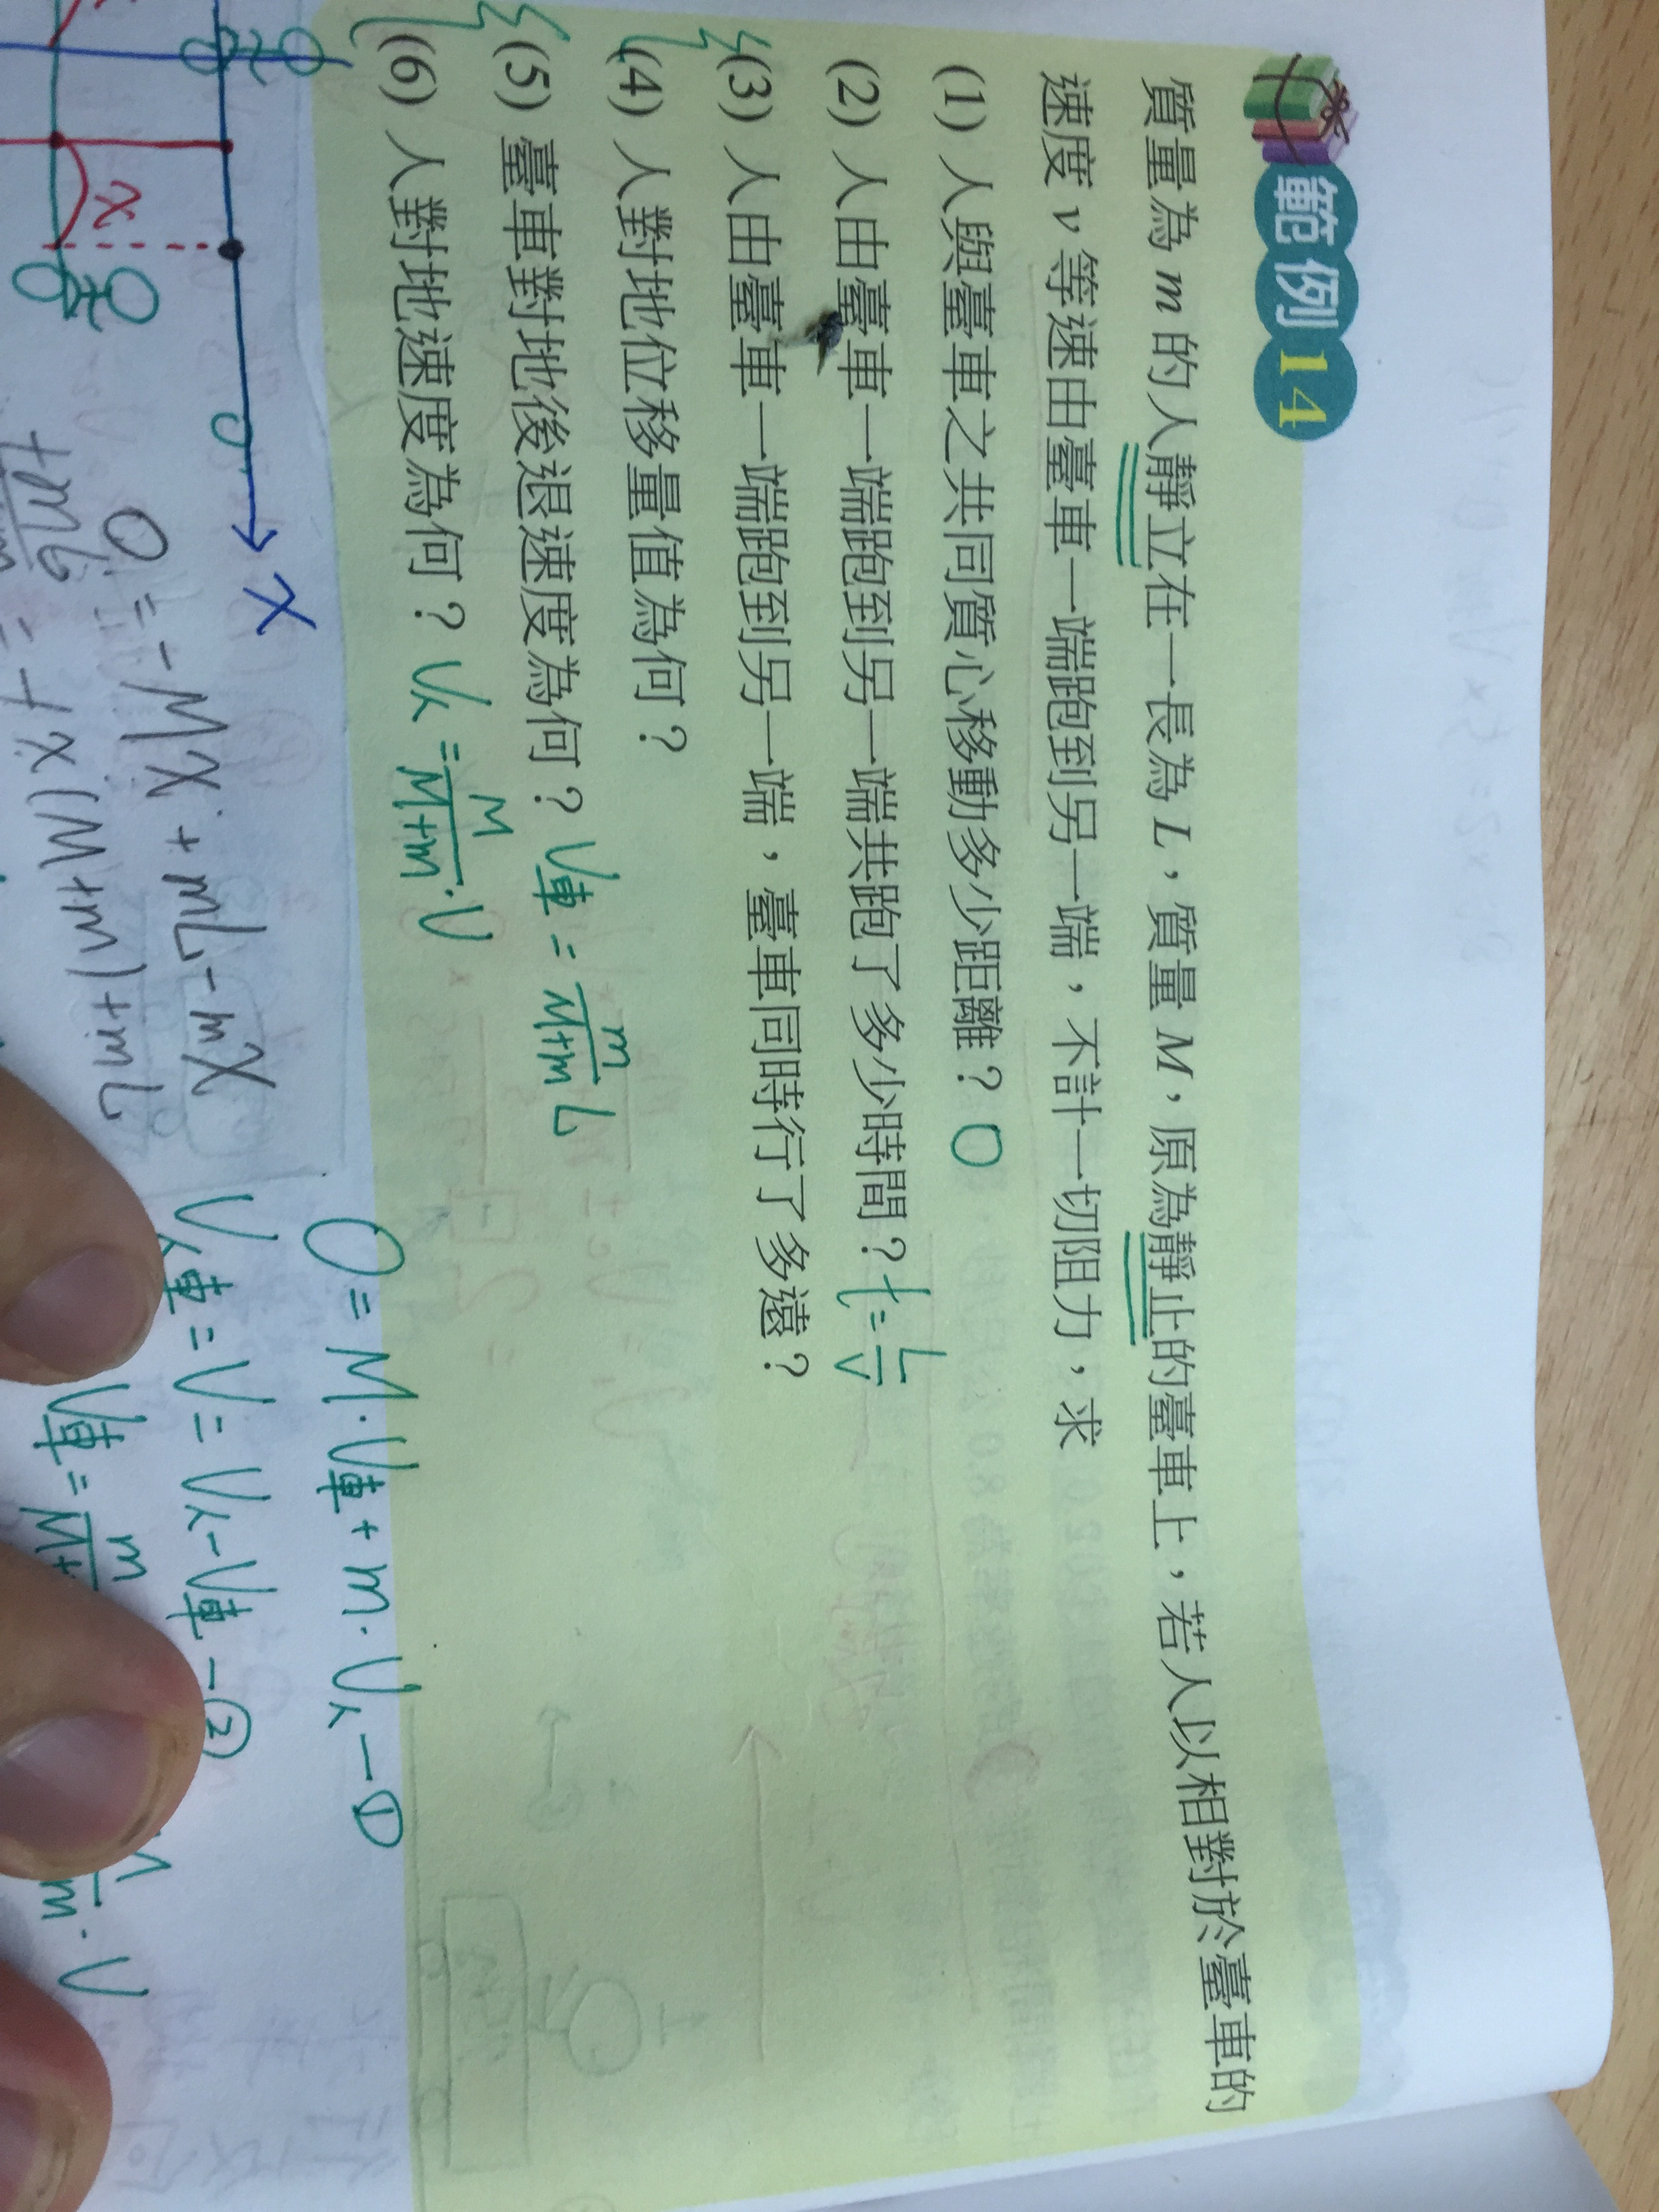 範例 14
質量為 m 的人靜立在一長為 L，質量 M，原為靜止的臺車上，若人以相對於臺車的
速度 v，等速由臺車一端跑到另一端，不計一切阻力，求
(1) 人與臺車之共同質心移動多少距離？ 0
(2) 人由臺車一端跑到另一端共跑了多少時間？ t = L/v
(3) 人由臺車一端跑到另一端，臺車同時行了多遠？
(4) 人對地位移量值為何？
(5) 臺車對地後退速度為何？ V車 = m/M+m L
(6) 人對地速度為何？ V人 = M/M+m · V
x
x
0 = M·V車 + m·V人 -①
V人車 = V = V人 - V車 -②